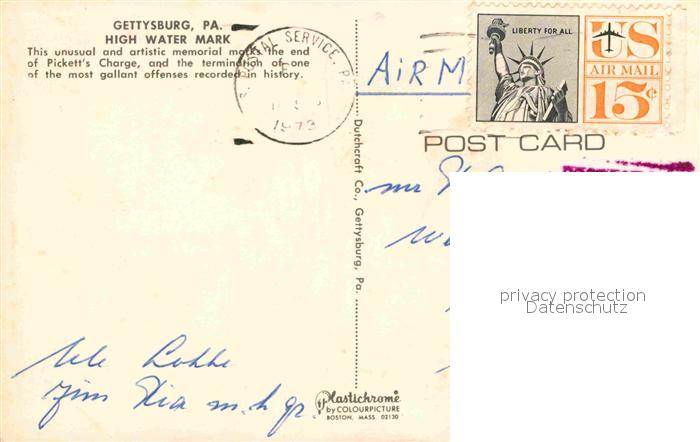 GETTYSBURG, PA.
HIGH WATER MARK
This unusual and artistic memorial marks the end
of Pickett's Charge, and the termination of one
of the most gallant offenses recorded in history.
AL SERVICE, PA
1973
AIR M
LIBERTY FOR ALL
US
AIR MAIL
15¢
POST CARD
Dutchcraft Co., Gettysburg, Pa.
mr
privacy protection
Datenschutz
Plastichrome
by COLOURPICTURE
BOSTON, MASS. 02130